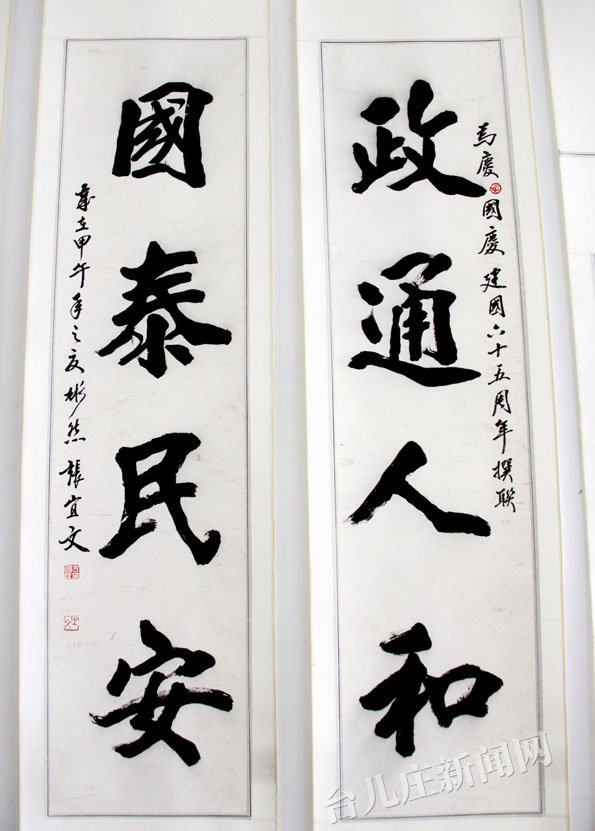 為慶國慶建國六十五周年撰聯
政通人和
國泰民安
歲在甲午年之夏彬然張宜文
台儿庄新闻网